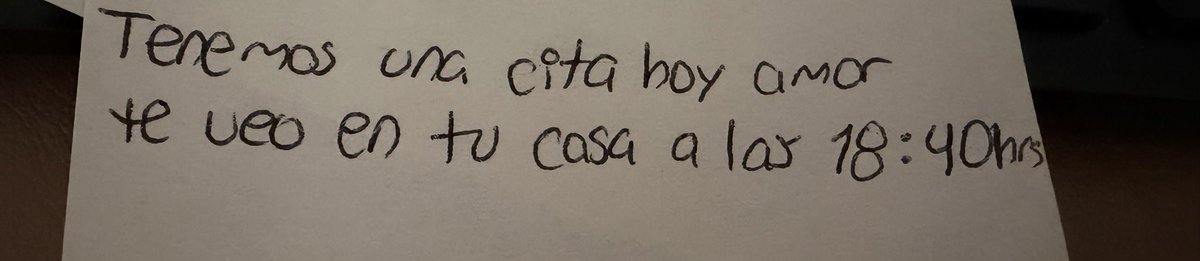 Tenemos una cita hoy amor
te veo en tu casa a las 18:40hrs